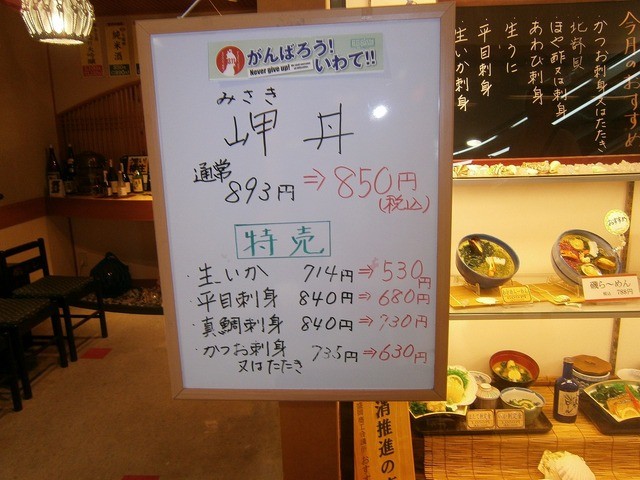 がんばろう!
いわて!!
Never give up!
みさき
岬 丼
通常
893円 ⇒ 850円
(税込)
特売
・生いか 714円 ⇒ 530円
・平目刺身 840円 ⇒ 680円
・真鯛刺身 840円 ⇒ 730円
・かつお刺身 735円 ⇒ 630円
又はたたき
今月のおすすめ
・かつお刺身又はたたき
・北寄貝
・ほや酢又は刺身
・あわび刺身
・生うに
・平目刺身
・生いか刺身
純米酒
おすすめ
磯らーめん
税込 788円
消推進の